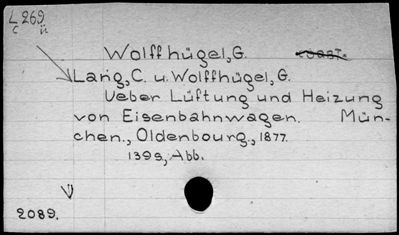 L269
c ü
Wolffhügel, G.
Lang, C. u. Wolffhügel, G.
Ueber Lüftung und Heizung
von Eisenbahnwagen. Mün-
chen., Oldenbourg., 1877.
139s, Abb.
2089.